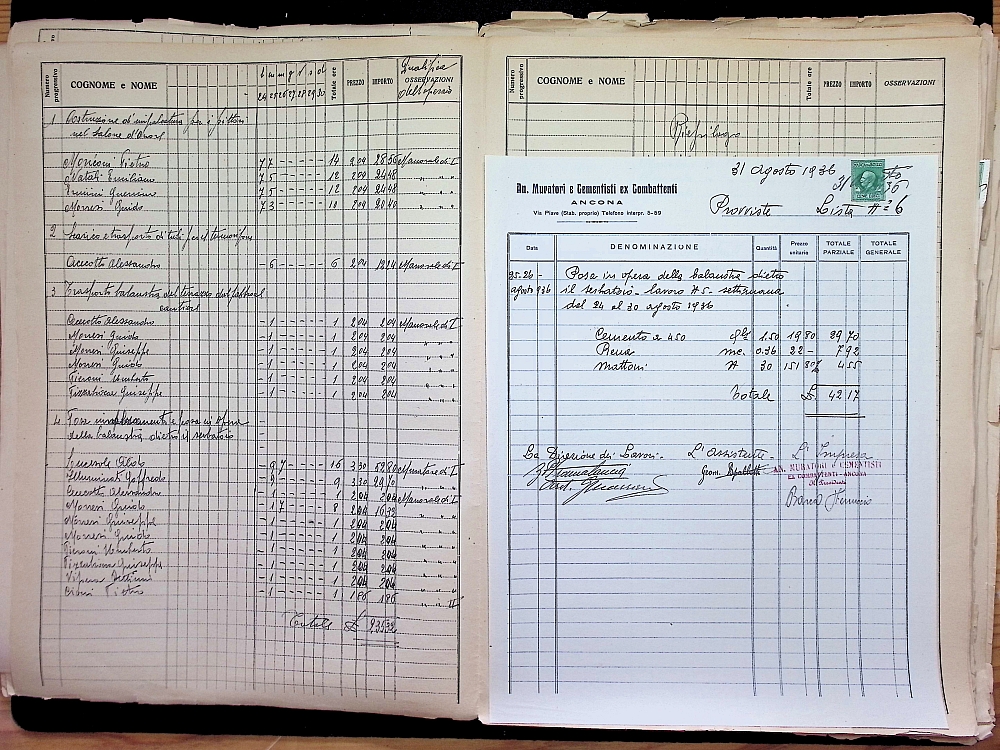 Numero progressivo COGNOME e NOME l m m g v s d Totale ore PREZZO IMPORTO Qualifica dell'operaio OSSERVAZIONI
24 25 26 27 28 29 30
1 Costruzione d'impalcatura per i pittori
nel Salone d'Onore
Pietro 7 7 - - - - - 14 2 04 28 56 Manovale di I
Natali Emiliano 7 5 - - - - - 12 2 04 24 48 " " "
Guerrino 7 5 - - - - - 12 2 04 24 48 " " "
Morresi Guido 7 3 - - - - - 10 2 04 20 40 " " "
2 Scarico e trasporto di tubi per il termosifone
Ceccotto Alessandro - 6 - - - - - 6 2 04 12 24 Manovale di I
3 Trasporto balaustra del terrazzo dai
cantieri
Ceccotto Alessandro - 1 - - - - - 1 2 04 2 04 Manovale di I
Morresi Guido - 1 - - - - - 1 2 04 2 04 " " "
Morresi Giuseppe - 1 - - - - - 1 2 04 2 04 " " "
Morresi Guido - 1 - - - - - 1 2 04 2 04 " " "
Pieroni Umberto - 1 - - - - - 1 2 04 2 04 " " "
Giuseppe - 1 - - - - - 1 2 04 2 04 " " "
4 e posa in opera
della balaustra dietro il serbatoio
- 9 7 - - - - 16 3 30 52 80 Muratore di I
Goffredo - 9 - - - - - 9 3 30 29 70 " " "
Ceccotto Alessandro - 1 - - - - - 1 2 04 2 04 Manovale di I
Morresi Guido - 1 7 - - - - 8 2 04 16 32 " " "
Morresi Giuseppe - 1 - - - - - 1 2 04 2 04 " " "
Morresi Guido - 1 - - - - - 1 2 04 2 04 " " "
Pieroni Umberto - 1 - - - - - 1 2 04 2 04 " " "
Giuseppe - 1 - - - - - 1 2 04 2 04 " " "
Vipera - 1 - - - - - 1 2 04 2 04 " " "
Pietro - 1 - - - - - 1 1 86 1 86 " " II
Totale £
Numero progressivo COGNOME e NOME Totale ore PREZZO IMPORTO OSSERVAZIONI
Riepilogo
31 agosto 1936
An. Muratori e Cementisti ex Combattenti
ANCONA
Via Piave (Stab. proprio) Telefono interpr. 5-89
Provviste Lista N° 6
Data DENOMINAZIONE Quantità Prezzo unitario TOTALE PARZIALE TOTALE GENERALE
25-26 - Posa in opera della balaustra dietro
agosto 936 il serbatoio - lavoro N 5 - settimana
dal 24 al 30 agosto 1936
Cemento a 450 qli 1.50 19 80 29 70
Rena mc. 0.36 22 - 7 92
Mattoni N 30 151 80 4 55
Totale £. 42 17
La Direzione dei Lavori - L'Assistente - L'Impresa
Geom.
AN. MURATORI e CEMENTISTI
EX COMBATTENTI - ANCONA
Il Presidente